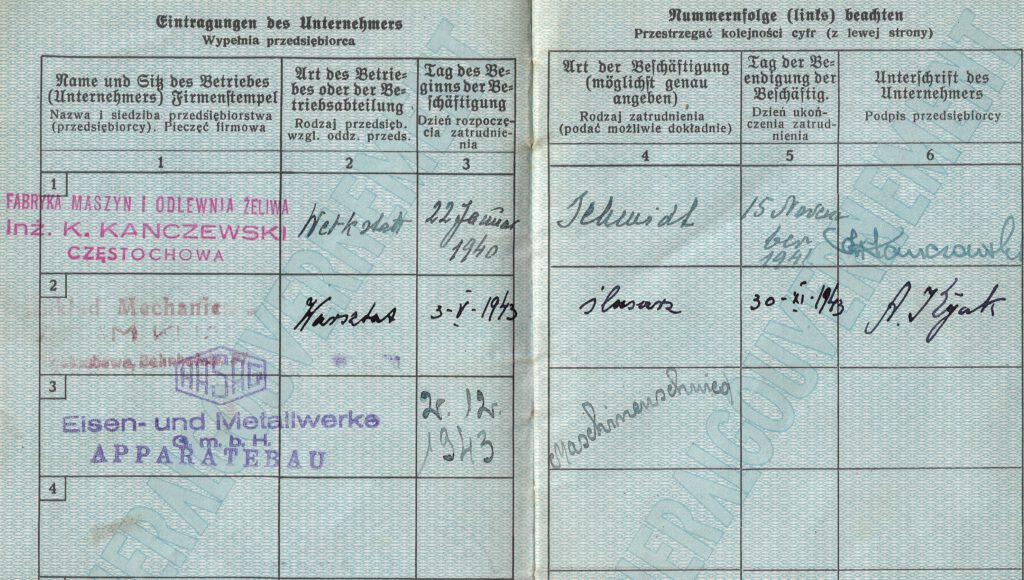 Eintragungen des Unternehmers
Wypełnia przedsiębiorca
Name und Sitz des Betriebes
(Unternehmers) Firmenstempel
Nazwa i siedziba przedsiębiorstwa
(przedsiębiorcy). Pieczęć firmowa
Art des Betrie-
bes oder der Be-
triebsabteilung
Rodzaj przedsięb.
wzgl. oddz. przeds.
Tag des Be-
ginns der Be-
schäftigung
Dzień rozpoczę-
cia zatrudnie-
nia
1
2
3
1
FABRYKA MASZYN I ODLEWNIA ŻELIWA
Inż. K. KANCZEWSKI
CZĘSTOCHOWA
Werkstatt
22 Januar
1940
2
Mechanic
Warsztat
3-V-1943
3
HASAG
Eisen- und Metallwerke
G.m.b.H.
APPARATEBAU
2. 12.
1943
4
Nummernfolge (links) beachten
Przestrzegać kolejności cyfr (z lewej strony)
Art der Beschäftigung
(möglichst genau
angeben)
Rodzaj zatrudnienia
(podać możliwie dokładnie)
Tag der Be-
endigung der
Beschäftig.
Dzień ukoń-
czenia zatrud-
nienia
Unterschrift des
Unternehmers
Podpis przedsiębiorcy
4
5
6
Schmidt
15 Novem
ber
1941
Kanczewski
ślusarz
30-XI-1943
A. Kijak
Maschinenschmied